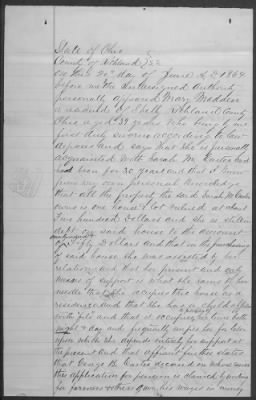 State of Ohio
County of Richland } SS
On this 20th day of June A.D. 1864
before me the undersigned Authority
personally appeared Mary Madden
a resident of Shelby Richland County
Ohio aged 39 years Who being by me
first duly sworn according to law
deposes and says that she is personally
acquainted with Sarah M. Carter and
has been for 20 years and that I know
from my own personal knowledge
that all the property the said Sarah M. Carter
owns is one house & lot valued at about
Two hundred Dollars and she is still in
debt on said house to the amount
of Fifty Dollars and that in the purchasing
of said house she was assisted by her
relatives and that her present and only
means of support is what she earns by her
needle that she occupies this house as a
residence and that she has a child
with fits and that it occupies her time both
night & day and frequently keeps her from labor
upon which she depends entirely for support at
the present And that affiant further states
that George B. Carter deceased on whose account
this application for pension is claimed
for farmers his wages in money